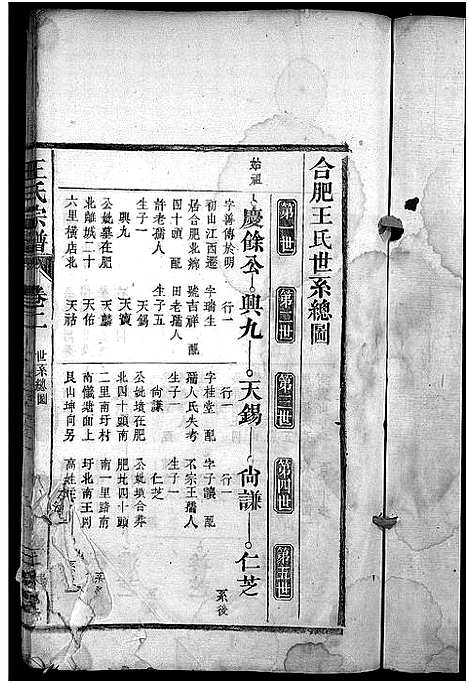 合肥王氏世系總圖
第一世
第二世
第三世
第四世
第五世
始祖
慶餘公
興九
天錫
尙謙
仁芝
系後
字善傳於明
初山江西遷
居合肥北鄉
四十頭 配
許老孺人
生子一
興九
公妣墓在肥
北離城二十
六里橫店北
行一
字瑞生
號吉祥 配
田老孺人
生子五
天錫
天寶
天麟
天祜
行一
字桂堂 配
孺人氏失考
生子一
尙謙
公妣墳在肥
北四十頭南
二里南圩村
南懺塘面上
艮山坤向另
行一
字子讓 配
不宗王孺人
生子一
仁芝
公妣墳合葬
肥北四十頭
南一里路南
圩北南王岡
王氏宗譜
卷二
世系總圖